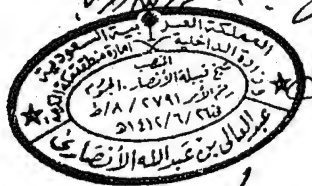 المملكة العربية السعودية
وزارة الداخلية
إمارة منطقة مكة المكرمة
المنصب
شيخ قبيلة الأنصار .. الجموم
رقم الأمر ٢٧٩١ / ٨ / ط
في ٢٦ / ٦ / ١٤١٢هـ
عبدالعالي بن عبدالله الأنصاري